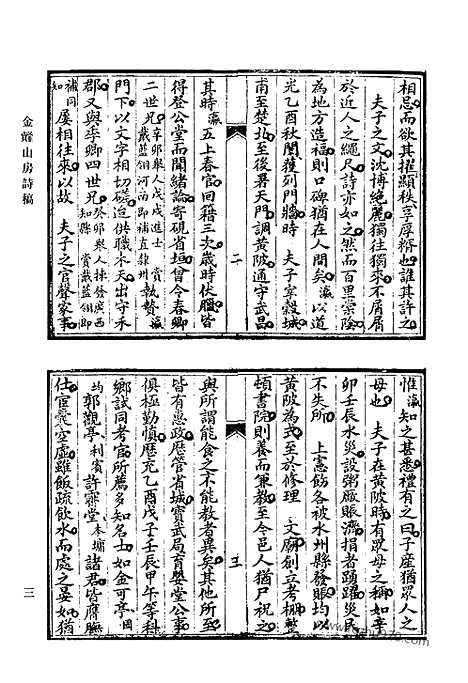 金嶽山房詩稿
相忌而欲其擢顯秩享厚糈也誰其許之
夫子之文沈博絶麗獨往獨來不屑屑
於近人之繩尺詩亦如之然而百里崇陰
為地方造福則口碑猶在人間矣瀛以道
光乙酉秋闈獲列門牆時　夫子宰穀城
甫至楚北至後署天門調黃陂通守武昌
其時瀛五上春官回籍三次歲時伏臘皆
得登公堂而聞緒論寄硯省垣會今春卿
二世兄辛卯舉人戊戌進士
戴藍翎河南即補直隸州賞執贄瀛
門下以文字相切磋迨供職水天出守承
郡又與季卿四世兄癸卯舉人揀發廣西
知縣賞戴藍翎即
補同
知屢相往來以故　夫子之官聲家事
二
惟瀛知之甚悉禮有之曰子產猶眾人之
母也　夫子在黃陂時有眾母之稱如辛
卯壬辰水災設粥廠賑濟捐者踴躍災民
不失所　上憲飭各被水州縣發賑均以
黃陂為式至於修理　文廟創立考棚整
頓書院則養而兼教至今邑人猶尸祝之
與所謂能食之不能教者異矣其他所至
皆有惠政歷管省城寶武局育嬰堂公事
俱極勤慎歷充乙酉戊子壬辰甲午等科
鄉試同考官所薦多知名士如金可亭國
均郭觀亭利賓許霽堂本墉諸君皆膺膴
仕宦橐空虛雖飯疏飲水而處之晏如猶
三
三